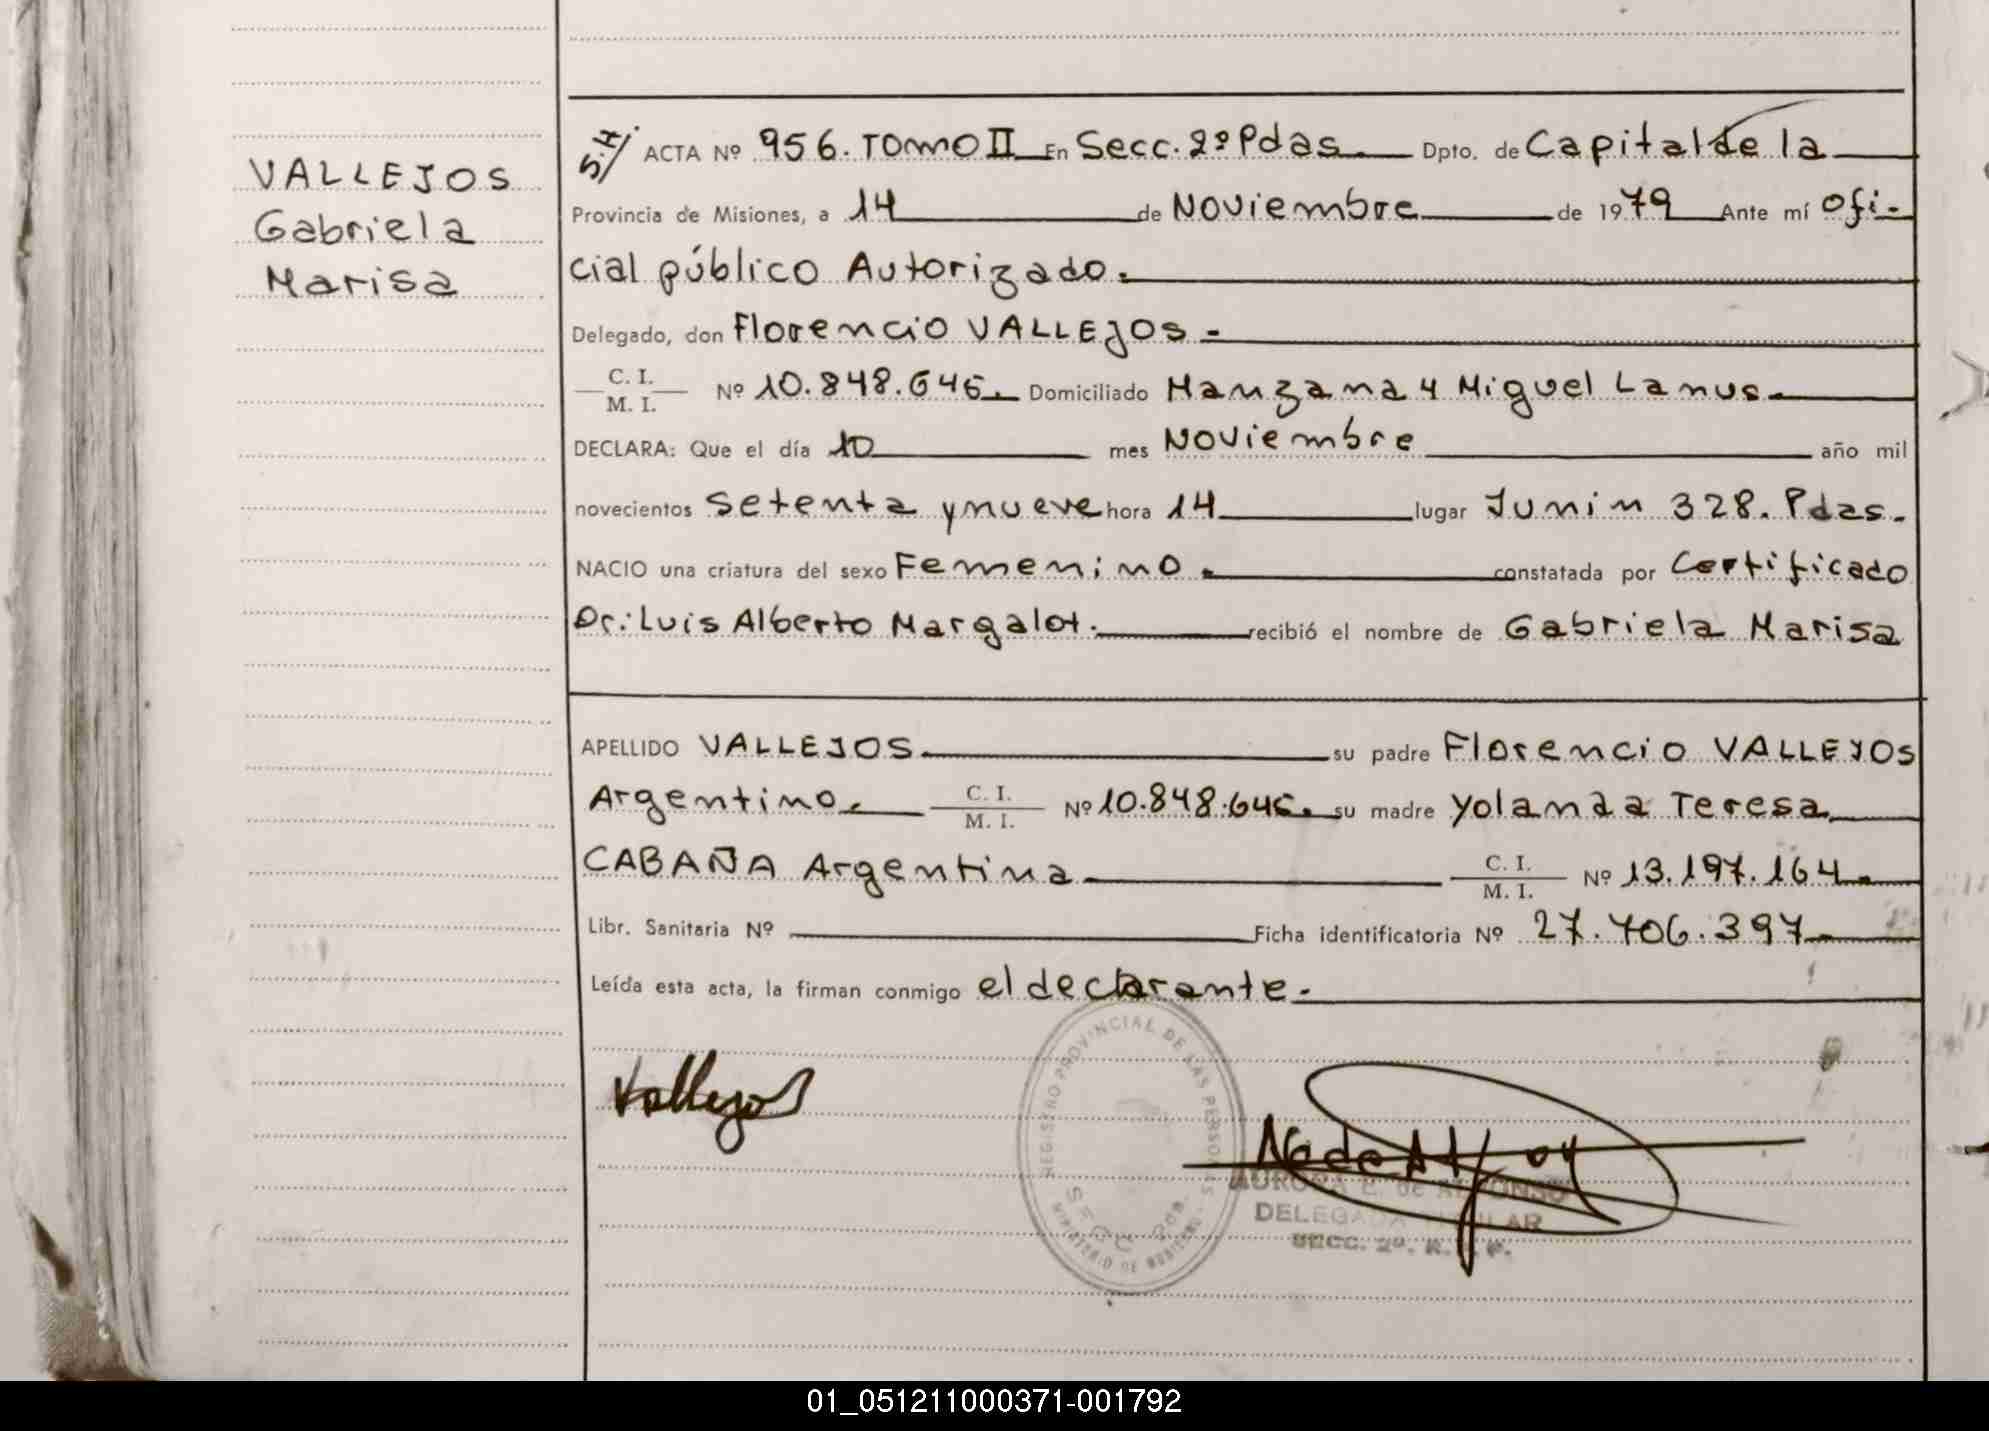 VALLEJOS
Gabriela
Marisa
S.H/. ACTA Nº 956. TOMO II En Secc. 2º Pdas. Dpto. de Capital de la
Provincia de Misiones, a 14 de Noviembre de 1979 Ante mí ofi-
cial público Autorizado.
Delegado, don Florencio VALLEJOS -
C. I.
M. I. Nº 10.848.645. Domiciliado Manzana 4 Miguel Lanus.
DECLARA: Que el día 10 mes Noviembre año mil
novecientos setenta y nueve hora 14 lugar Junin 328. Pdas.
NACIO una criatura del sexo Femenino. constatada por Certificado
Dr: Luis Alberto Margalot. recibió el nombre de Gabriela Marisa
APELLIDO VALLEJOS. su padre Florencio VALLEJOS
Argentino. C. I.
M. I. Nº 10.848.645. su madre Yolanda Teresa
CABAÑA Argentina C. I.
M. I. Nº 13.197.164.
Libr. Sanitaria Nº Ficha identificatoria Nº 27.706.397
Leída esta acta, la firman conmigo el declarante.-
Vallejos
REGISTRO PROVINCIAL DE LAS PERSONAS
MINISTERIO DE GOBIERNO
AURORA E. de ALFONSO
DELEGADA TITULAR
SECC. 2º. R. P. P.
01_051211000371-001792